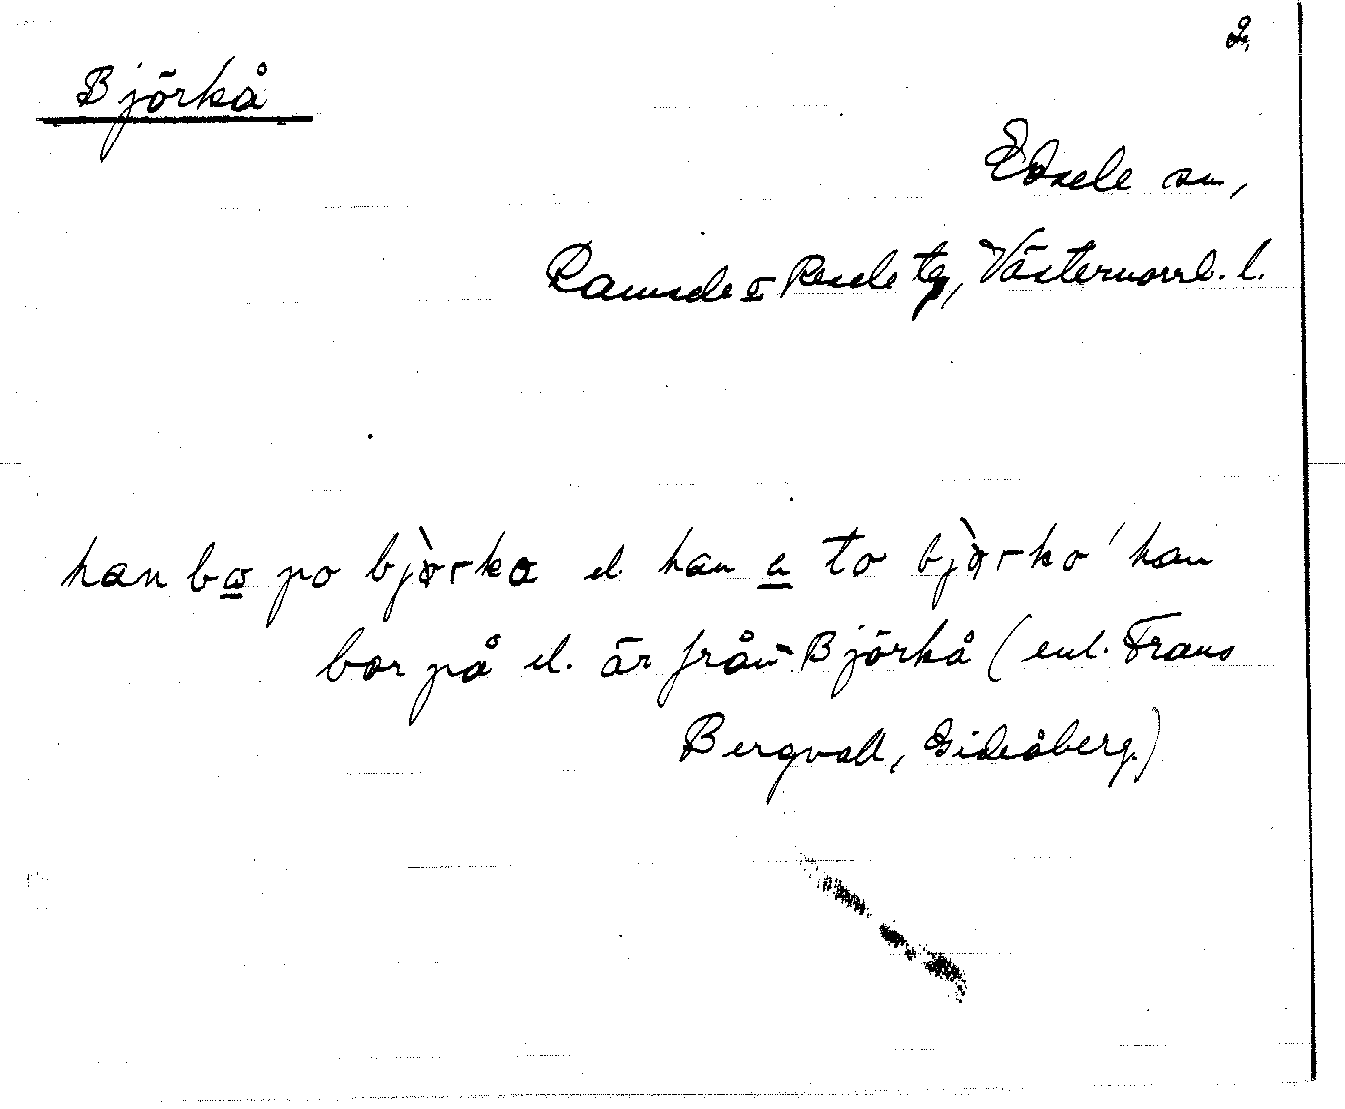 2
Björkå
Edsele sn,
Ramsele o Resele tg, Västernorrl. l.
han bo po bjòrka el. han e to bjòrko' han
bor på el. är från Björkå (enl. Frans
Bergvall, Gideåberg.)